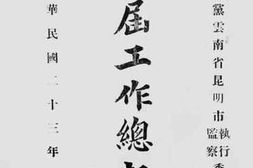 黨雲南省昆明市執行
監察
屆工作總
華民國二十三年